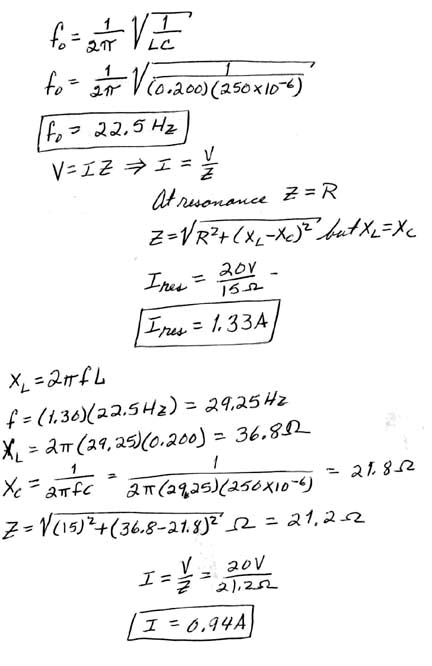 f₀ = 1/2π √(1/LC)
f₀ = 1/2π √(1/(0.200)(250×10⁻⁶))
f₀ = 22.5 Hz
V = IZ ⇒ I = V/Z
At resonance Z = R
Z = √(R² + (X_L - X_C)²) but X_L = X_C
I_res = 20V/15Ω
I_res = 1.33A
X_L = 2πfL
f = (1.30)(22.5Hz) = 29.25Hz
X_L = 2π(29.25)(0.200) = 36.8Ω
X_C = 1/2πfC = 1/2π(29.25)(250×10⁻⁶) = 21.8Ω
Z = √((15)² + (36.8-21.8)²) Ω = 21.2Ω
I = V/Z = 20V/21.2Ω
I = 0.94A